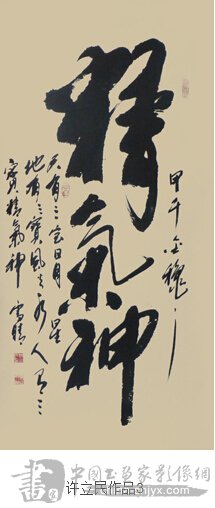 甲午金穐
精氣神
天有三宝日月星
地有三寶風火水人有三
寶精氣神 雪晴
许立民作品3
中国书画家影像网
jyx.com